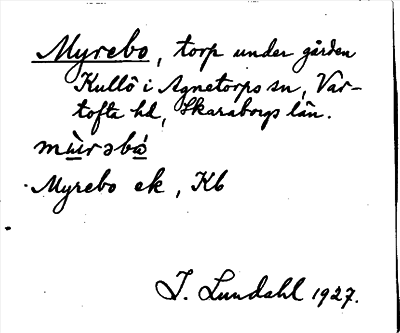 Myrebo, torp under gården
Kullö i Agnetorps sn, Var-
tofta hd, Skaraborgs län.
Myrebo ek, Kb
I. Lundahl 1927.